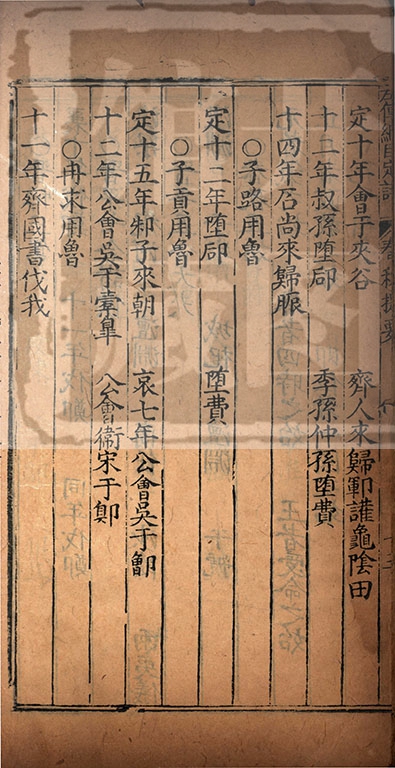 春秋提要
定十年會于夾谷 齊人來歸鄆讙龜陰田
十二年叔孫墮郈 季孫仲孫墮費
十四年石尚來歸脤
○子路用魯
定十二年墮郈 墮費
○子貢用魯
定十五年邾子來朝 哀七年公會吳于鄫
十二年公會吳于橐臯 公會衞宋于鄖
○冉求用魯
十一年齊國書伐我